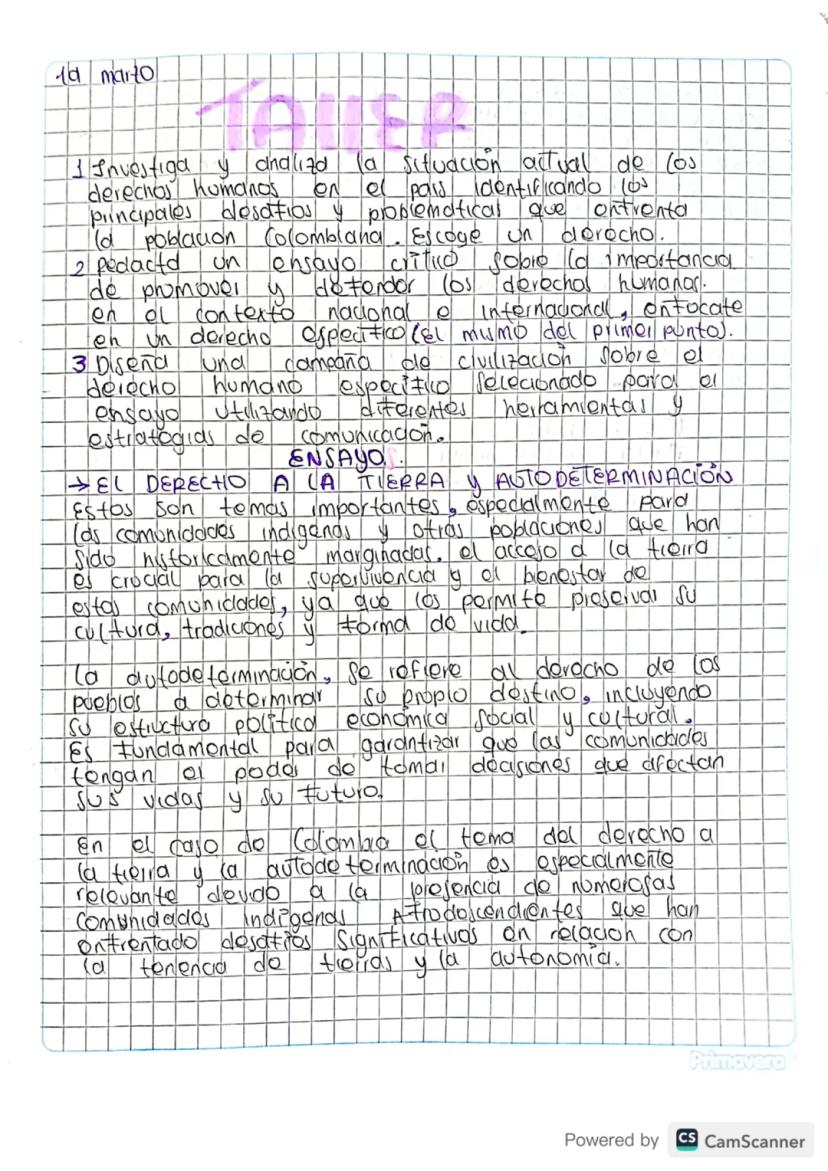 1d marzo
TALLER
1 Investiga y analiza la situación actual de los
derechos humanos en el pais identificando los
principales desafios y problematicas que enfrenta
la poblacion Colombiana. Escoge un derecho.
2 Redacta un ensayo crítico sobre la importancia
de promover y defender los derechos humanos.
en el contexto nacional e internacional, enfocate
en un derecho especifico (el mismo del primer punto).
3 Diseña una campaña de civilización sobre el
derecho humano específico selecionado para el
ensayo utilizando diferentes herramientas y
estrategias de comunicación.
ENSAYO.
→ EL DERECHO A LA TIERRA y AUTODETERMINACIÓN
Estos son temas importantes, especialmente para
las comunidades indigenas y otras poblaciones que han
sido historicamente marginadas. el acceso a la tierra
es crucial para la supervivencia y el bienestar de
estas comunidades, ya que los permite preservar su
cultura, tradiciones y forma de vida.
la autodeterminación, se refiere al derecho de los
pueblos a determinar su propio destino, incluyendo
su estructura politica economica social y cultural.
Es fundamental para garantizar que las comunidades
tengan el poder de tomar decisiones que afectan
sus vidas y su futuro.
En el caso de Colombia el tema del derecho a
la tierra y la autodeterminación es especialmente
relevante devido a la presencia de numerosas
comunidades indígenas Afrodescendientes que han
enfrentado desafios significativos en relacion con
la tenencia de tierras y la autonomía.
Primavera
Powered by CS CamScanner